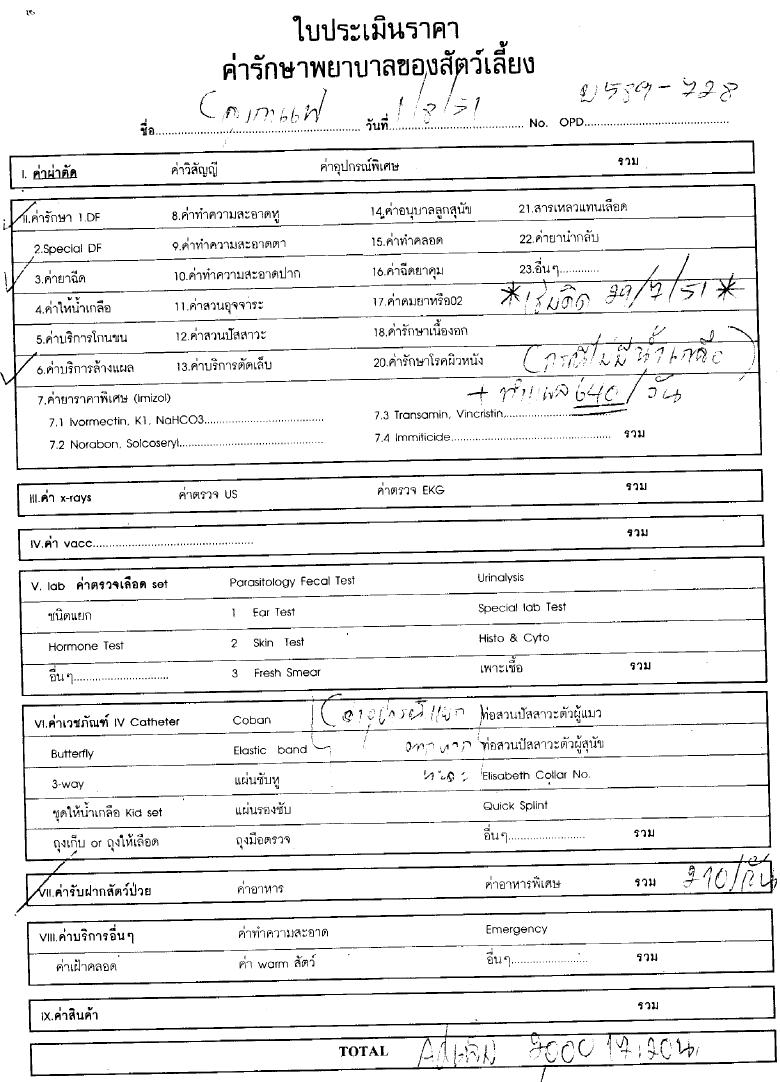 ใบประเมินราคา
ค่ารักษาพยาบาลของสัตว์เลี้ยง
ชื่อ.................... วันที่ 1/8/51 No. OPD....................
I. ค่าผ่าตัด ค่าวิสัญญี ค่าอุปกรณ์พิเศษ รวม
II.ค่ารักษา 1.DF 8.ค่าทำความสะอาดหู 14.ค่าอนุบาลลูกสุนัข 21.สารเหลวแทนเลือด
2.Special DF 9.ค่าทำความสะอาดตา 15.ค่าทำคลอด 22.ค่ายานำกลับ
3.ค่ายาฉีด 10.ค่าทำความสะอาดปาก 16.ค่าฉีดยาคุม 23.อื่นๆ............
4.ค่าให้น้ำเกลือ 11.ค่าสวนอุจจาระ 17.ค่าดมยาหรือ02 *เริ่มคิด 29/7/51*
5.ค่าบริการโกนขน 12.ค่าสวนปัสสาวะ 18.ค่ารักษาเนื้องอก
6.ค่าบริการล้างแผล 13.ค่าบริการตัดเล็บ 20.ค่ารักษาโรคผิวหนัง (กรณีไม่มีน้ำเกลือ)
7.ค่ายาราคาพิเศษ (Imizol) + ทำแผล 640/วัน
7.1 Ivormectin, K1, NaHCO3.................... 7.3 Transamin, Vincristin....................
7.2 Norabon, Solcoseryl.................... 7.4 Immiticide.................... รวม
III.ค่า x-rays ค่าตรวจ US ค่าตรวจ EKG รวม
IV.ค่า vacc.................... รวม
V. lab ค่าตรวจเลือด set Parasitology Fecal Test Urinalysis
ชนิดแยก 1 Ear Test Special lab Test
Hormone Test 2 Skin Test Histo & Cyto
อื่นๆ.................... 3 Fresh Smear เพาะเชื้อ รวม
VI.ค่าเวชภัณฑ์ IV Catheter Coban ท่อสวนปัสสาวะตัวผู้แมว
Butterfly Elastic band ท่อสวนปัสสาวะตัวผู้สุนัข
3-way แผ่นซับหู Elisabeth Collar No.
ชุดให้น้ำเกลือ Kid set แผ่นรองซับ Quick Splint
ถุงเก็บ or ถุงให้เลือด ถุงมือตรวจ อื่นๆ.................... รวม
VII.ค่ารับฝากสัตว์ป่วย ค่าอาหาร ค่าอาหารพิเศษ รวม 210/
VIII.ค่าบริการอื่นๆ ค่าทำความสะอาด Emergency
ค่าเฝ้าคลอด ค่า warm สัตว์ อื่นๆ.................... รวม
IX.ค่าสินค้า รวม
TOTAL 2000 17.20น.